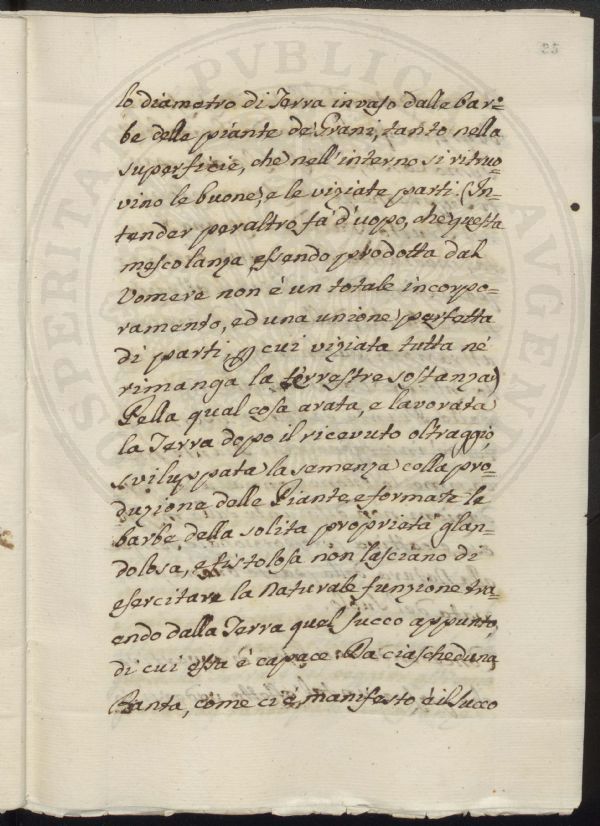 35
lo diametro di Terra invaso dalle bar=
be delle piante de' Grani, tanto nella
superficie, che nell'interno si ritruo=
vino le buone, e le viziate parti. (In=
tender peraltro fa d'uopo, che questa
mescolanza essendo prodotta dal
Vomere non è un totale incorpo=
ramento, ed una unione perfetta
di parti, cui viziata tutta né
rimanga la terrestre sostanza)
Della qual cosa arata, e lavorata
la Terra dopo il ricevuto oltraggio,
sviluppata la semenza colla pro=
duzione delle Piante, e formate le
barbe della solita proprietà glan=
dolosa, e fistolosa non lasciano di
esercitare la naturale funzione tra=
endo dalla Terra quel succo appunto,
di cui essa è capace. Da ciascheduna
Pianta, come ci è manifesto, è il succo